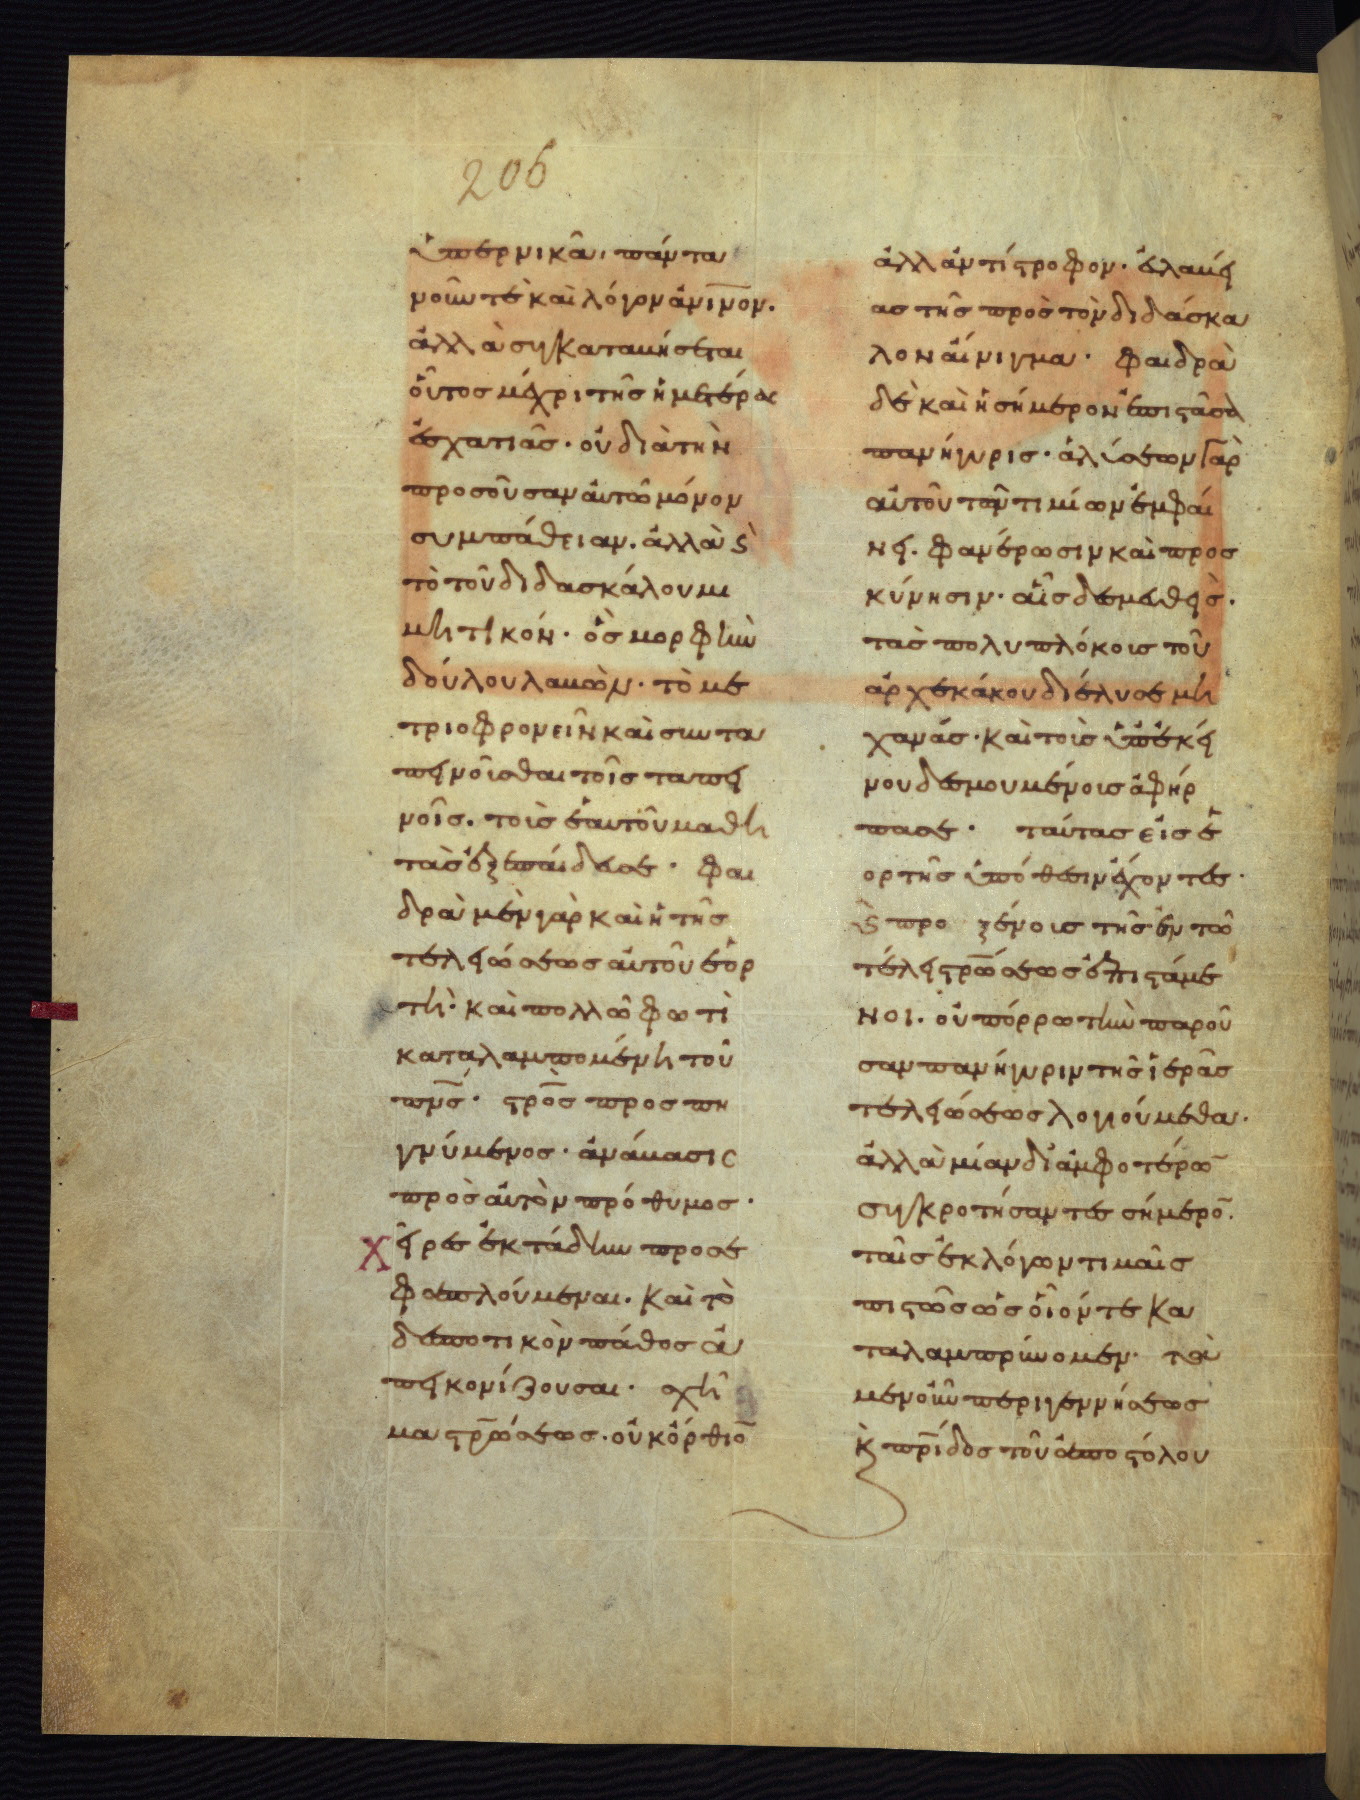 206
ὑπερνικᾶ, πάντα
νοῦν τὲ καὶ λόγον ἀνινον.
ἀλλὰ συγκαταβήσεται
οὗτος μέχρι τῆς ἡμετέρας
ἐσχατιᾶς· οὐ διὰ τὴν
προσοῦσαν αὐτῶ μόνον
συμπάθειαν. ἀλλὰ ϛ̀
τὸ τοῦ διδασκάλου μι
μητικόν· ὃς μορφὴν
δούλου λαβὼν· τὸ με
τριοφρονεῖν καὶ συντα
πεινοῦσθαι τοῖς ταπει
νοῖς. τοὺς ἑαυτοῦ μαθη
τὰς ἐξεπαίδευσε· φαι
δρὰ μὲν γὰρ καὶ ἡ τῆς
τελειώσεως αὐτοῦ ἑορ
τὴ· καὶ πολλῶ φωτὶ
καταλαμπομένη τοῦ
πν̅ς· ϛρο̅ς προσπη
γνύμενος· ἀνάβασις
πρὸς αὐτὸν πρόθυμος·
χεῖρες ἐκτάδην προσε
φαπλούμεναι. καὶ τὸ
δεσποτικὸν πάθος ἀ
πεικονίζουσαι· σχῆ
μα ϛρ̅ώσεως. οὐκ ὄρθιο̅
ἀλλ' ἀντίϛροφον· εὐλαβεί
ας τῆς πρὸς τὸν διδάσκα
λον αἴνιγμα· φαιδρὰ
δὲ καὶ ἡ σήμερον ἐπιϛᾶσα
πανήγυρις· ἁλύσεων γὰρ
αὐτοῦ τῶν τιμίων ἐμφαί
νει. φανέρωσιν καὶ προσ
κύνησιν· αἷς δεσμευθεὶς.
τὰς πολυπλόκους τοῦ
ἀρχεκάκου διέλυσε μη
χανάς· καὶ τοὺς ὑπ' ἐκεί
νου δεσμουμένους ἀφήρ
πασε· ταύτας εἰς ἑ
ορτῆς ὑπόθεσιν ἔχοντες·
ϛ̀ προξένους τῆς ἐν τῶ
τέλει ϛρ̅ώσεως ἐπιϛάμε
νοι. οὐ πόρρω τὴν παροῦ
σαν πανήγυριν τῆς ἱερᾶς
τελειώσεως λογιούμεθα·
ἀλλὰ μίαν δι' ἀμφοτέρω̅
συγκροτήσαντες σήμερο̅.
ταῖς ἐκ λόγων τιμαῖς
πιϛῶς ὡς οἷόν τε κα
ταλαμπρύνομεν· τὰ
μὲν οὖν περὶ γεννήσεως
κ̀ πρ̅ίδος τοῦ ἀποϛόλου